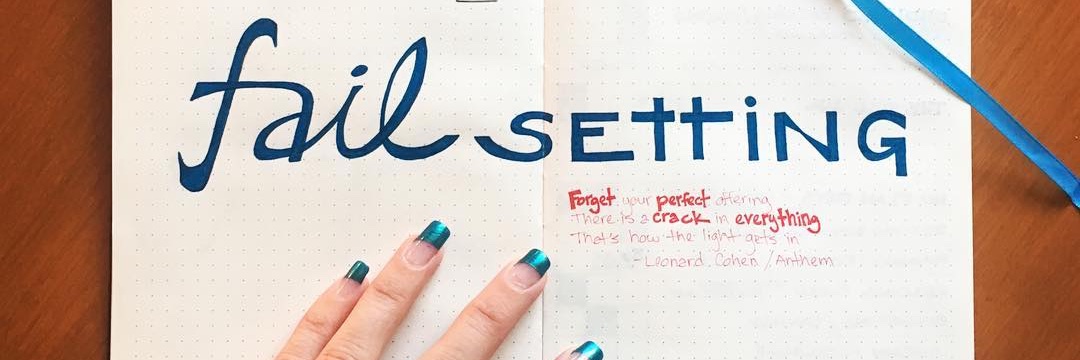 fail setting
Forget your perfect offering
There is a crack in everything
That's how the light gets in
- Leonard Cohen / Anthem